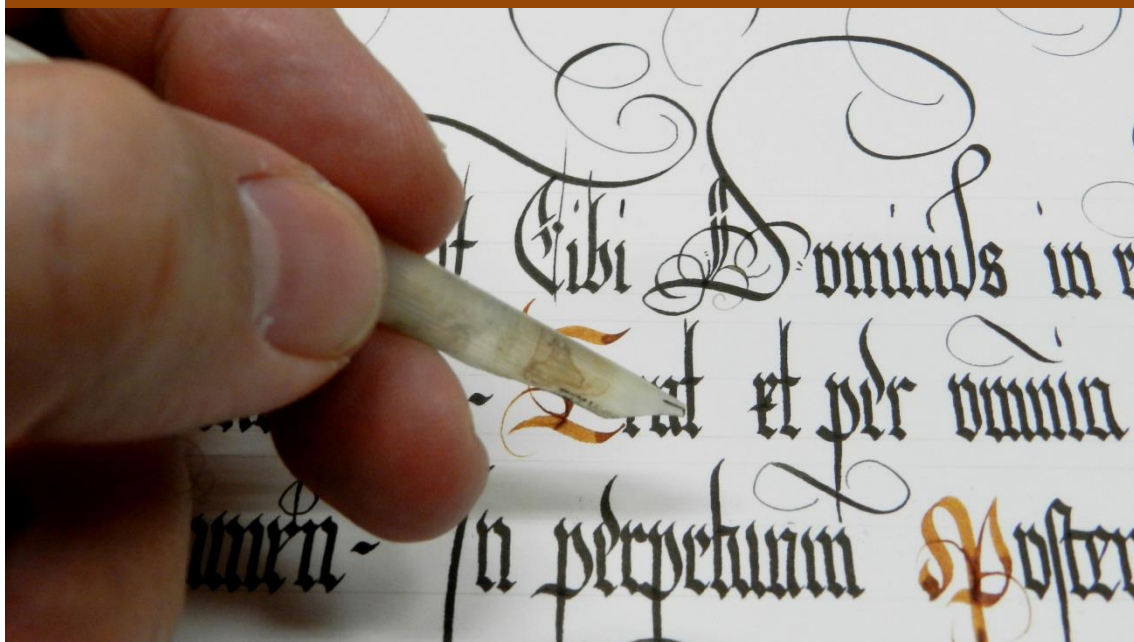 Tibi Dominus in
et per omnia
In perpetuum Noster